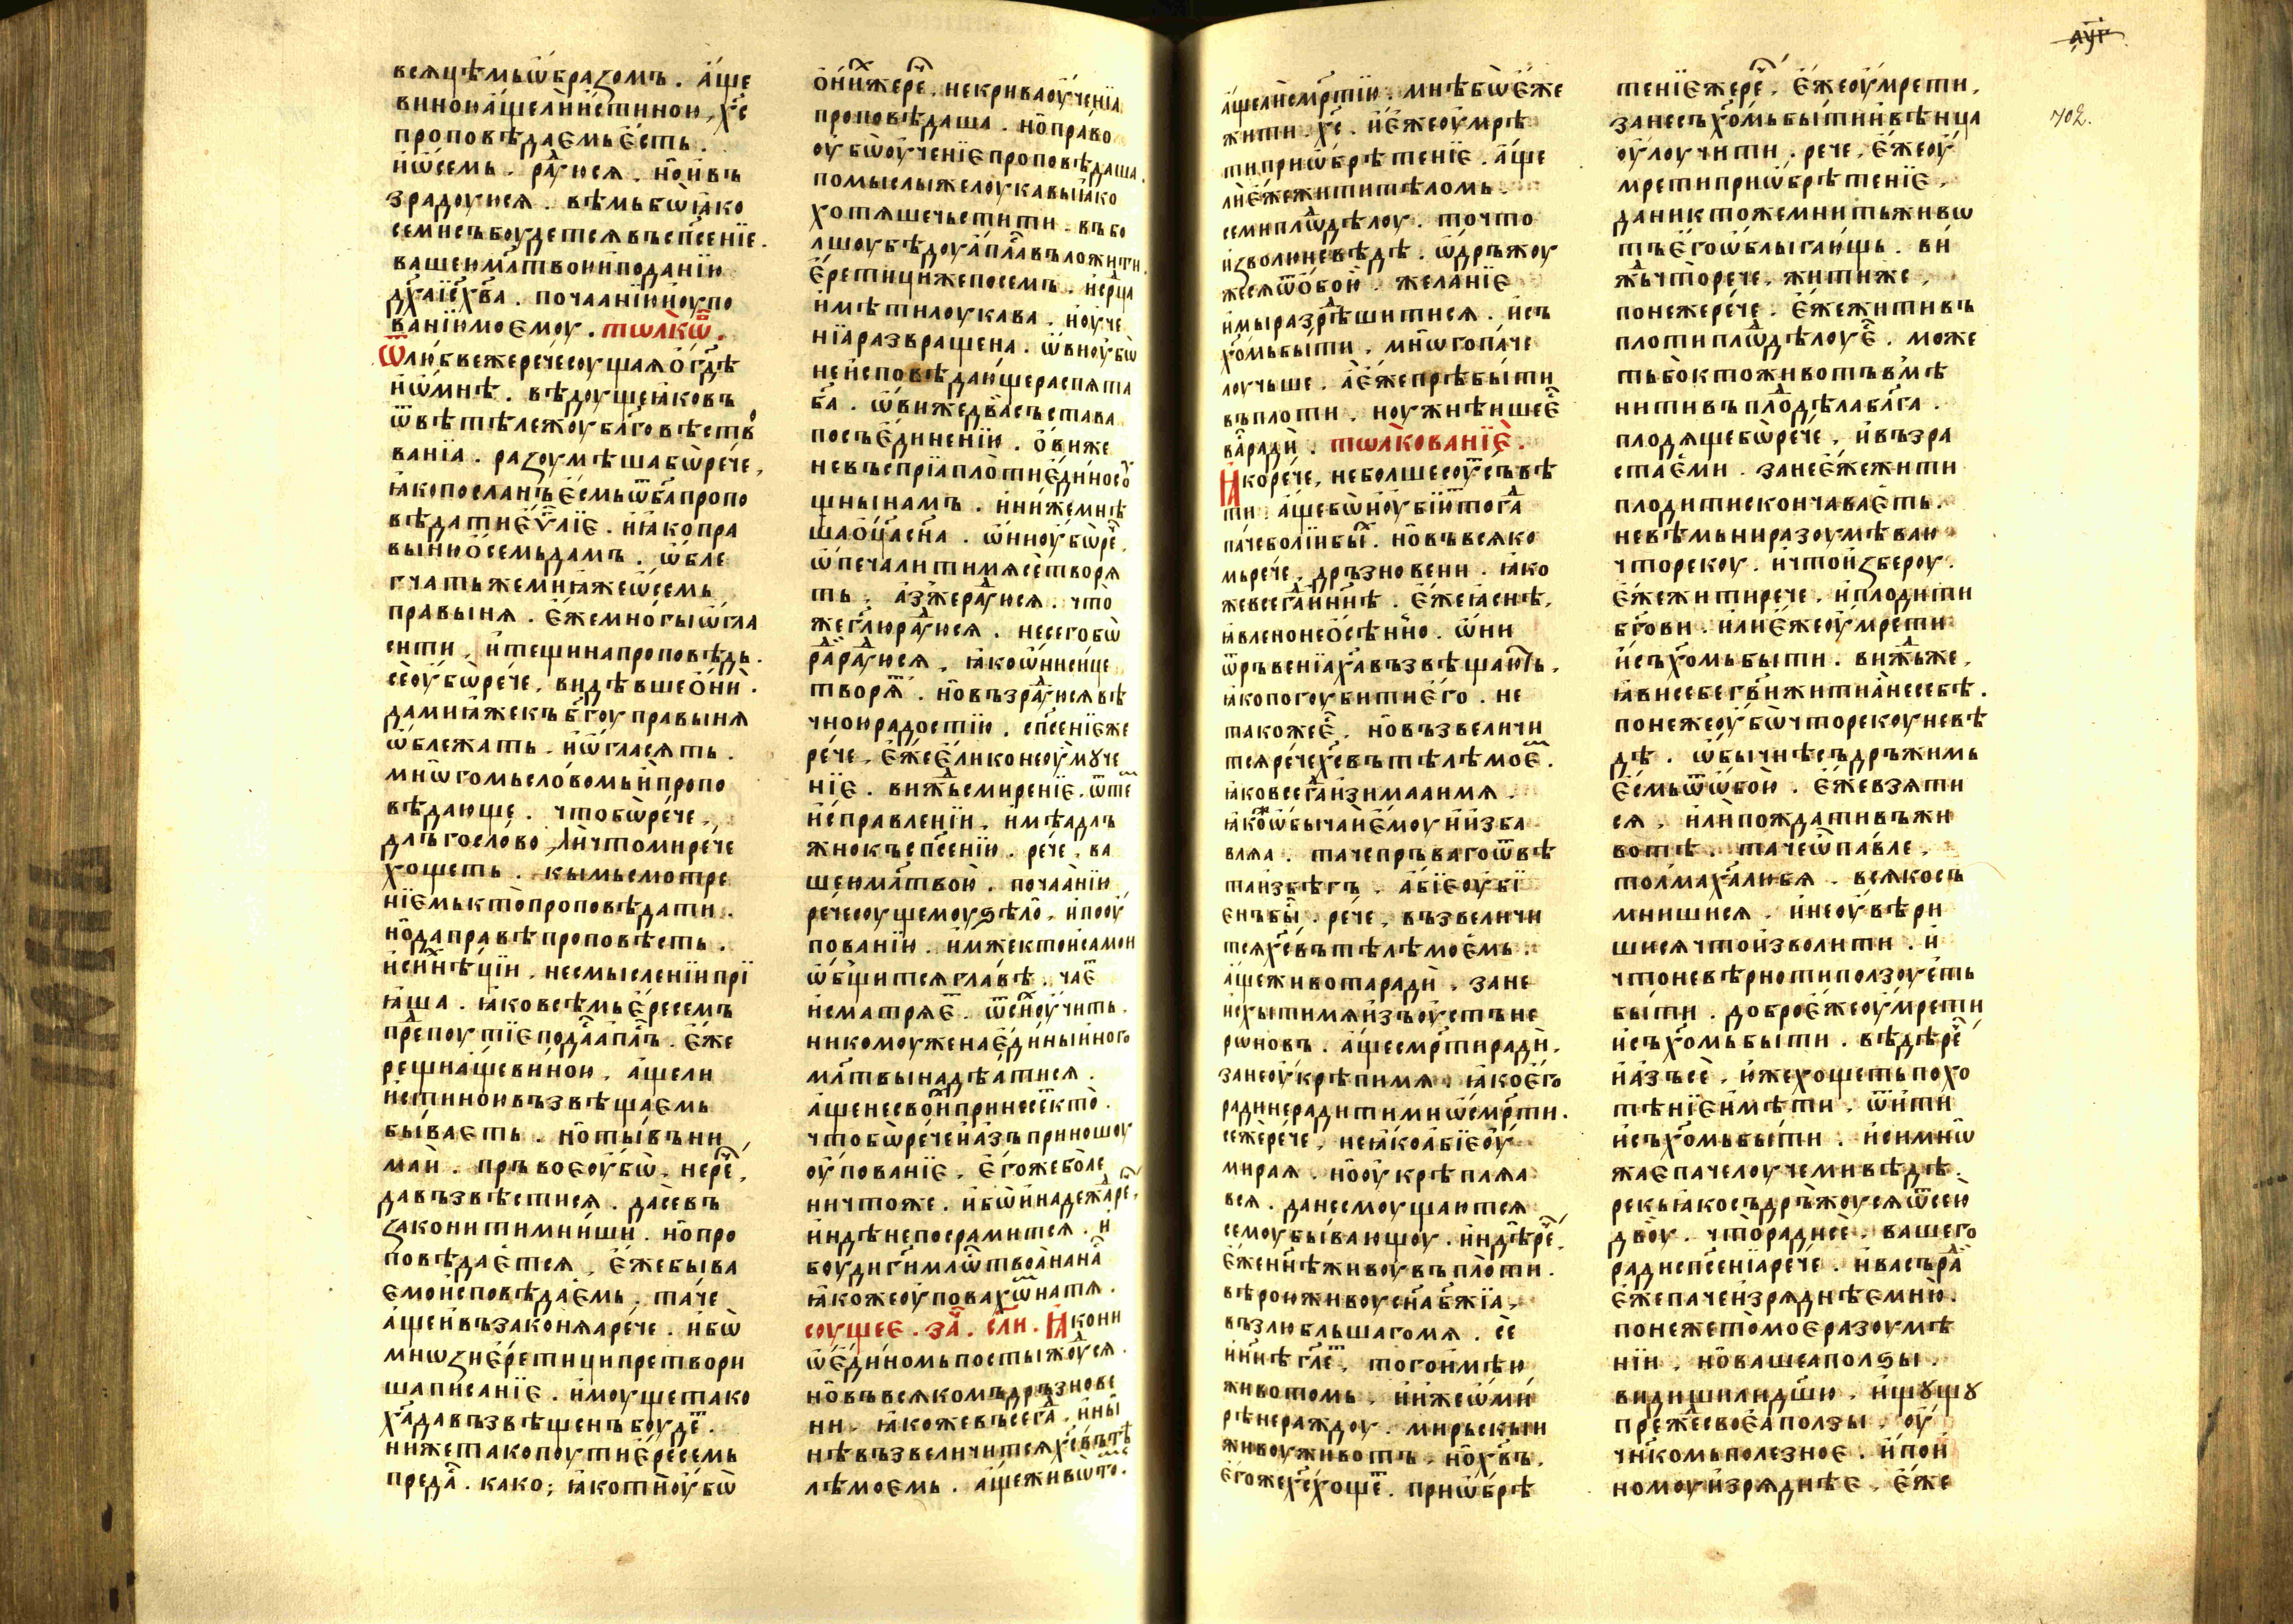 всяцѣмьѡ҆бразомъ. а҆́ще
виноюа҆́щелиі҆и҆́стиною, х҃с
проповѣдаемье҆́сть.
и҆ѡ҆семь. ра́дуюся. но҆и҆въ
зрадоуюся. вѣмьбѡꙗ҆́ко
семисъбоудетсявъсп҃сенїе.
вашеюмл҃твоюи҆поданїю
дх҃аі҆с҃х҃ва. почаанїюи҆оупо
ванїюмоемоу. тѡлкѡ҇.
Ѿлюбвежеречесоущаяо҆́гдѣ
и҆ѡ҆мнѣ. вѣдоущеꙗ҆ковъ
ѿвѣтѣлежоубл҃говѣств
ванїа. разоумѣшабѡре́че,
ꙗ҆копосланъе҆́смьѿб҃апропо
вѣдатиеѵ҃лїе. и҆ꙗ҆копра
выиѡ҆семьдамъ. ѡ҆бле
гчатьжемиꙗ҆жеѡ҆семь
правыня. е҆́жемногыѡ҆гла
сити, и҆тещинапроповѣдь.
сео҆убѡрече, видѣвшео҆ни.
дамиꙗ҆жекъб҃гоуправыня
ѡ҆блежать. и҆ѡ҆гласять.
мнѡгомьсловомьи҆пропо
вѣдающе. чтобѡрече,
далъгослово, личтомирече
хощеть. кымьсмотре
нїемькто̀проповѣдати.
но҆даправѣпроповѣсть.
и҆сн҃нѣции, несмысленїипрї
ꙗ҆ша. ꙗ҆ковсѣмьересемъ
предпоутїеподаа҆п҃лъ. е҆́же
рещиа҆́щевиною, а҆́щели
и҆́стиноювъзвѣщаемь
бываеть. но҆тывъни
маи. пръвоео҆убѡ. нере҇,
давъзвѣстися. дасевъ
законитимниши. но҆про
повѣдается, е҆́жебыва
емоисповѣдаемь. таче
а҆́щеи҆възаконяарече. и҆бѡ
мнѡзиеретиципретвори
шаписанїе. и҆моущетако
х҃адавъзвѣщенъбоуде҇.
нижетакопоутиересемь
преда҇. како; ꙗ҆котио҆убѡ
о҆ниижере҇. некриваоученїа
проповѣдаша. но҆право
оубѡоученїепроповѣдаша.
помыслыжелоукавыꙗ҆ко
хотящечьстити. въбо
лшоубѣдоуа҆п҃лавъложити.
еретицижепосемъ. и҆срдца
и҆мѣтилоукава. и҆оуче
нїаразвращена. ѡ҆виоубѡ
неи҆споведающераспята
б҃а. ѡ҆вижедвасъстава
посъединенїю. о҆виже
невъспрїаплотиединосо
щныинамъ. и҆нижемнѣ
шао҆цаси҃на. ѡ҆ниоубѡре҇,
ѡ҆печалитимясетворя
ть. а҆зжерадуюся. что
жегл҃юрадуюся. несегобѡ
радирадуюся, ꙗ҆коѡ҆нисице
творя҇. но҆възрадуюсявѣ
чноюрадостїю. сп҃сенїеже
рече, е҆́жееликонеоу҆мꙋче
нїе. виждьсмиренїе. ѿте
и҆справленїи, и҆мѣадлъ
жнокъсп҃сенїю. рече, ва
шеюмл҃твою. почаанїю
речесоущемоуѕѣло, и҆поо҆у
пованїю. и҆мжектои҆самои
ѡ҆бщитсяславѣ. чае҇
и҆сматряе҇. ѿсихоучить.
никомоуженаединыиного
мл҃твынадѣатися.
а҆́щенесвои҆принесекто.
чтобѡречеи҆а҆зъприношоу
о҆упованїе, е҆гожебо́ле
ничтоже. и҆бѡи҆надежаре҇,
и҆идѣнепосрамитея. и҆
боудиг҃имл҃ѿтвоа҆нана҇
ꙗ҆кожео҆уповахѡмнатя.
соущее. за҇. сл҃и. Ꙗ҆кони
ѡ҆единомьпостыжоуся.
но҆въвсякомьдръзнове
ни, ꙗ҆кожевъсегда, и҆ны
нѣвъзвеличитсях҃свътѣ
лѣмоемь. а҆щеживѡтѡ.
а҆щелисмр҃тїю. мнѣбѡе҆́же
жити. х҃с. и҆е҆́жеоумрѣ
типриѡ҆брѣтенїе. а҆́ще
лие҆́жежититѣломь.
семиплѡдѣлоу. точто
и҆зволюневѣдѣ. ѡ҆дръжоу
жесяѿо҆бою. желанїе
и҆мыразрѣшитися. и҆съ
хомьбыти, мнѡгопаче
лоучьше. а҆е҆́жепрѣбыти
въплоти. ноужнѣишее҇
васради. тѡлкованїе.
Ꙗ҆корече, неболшесоусъвѣ
ти. а҆́щебѡи҆оубїитогда
пачеболїибы҇. но҆въвсяко
мьрече, дръзновени. ꙗ҆ко
жевсегдаи҆н҃нѣ. е҆́жеꙗ҆снѣ,
ꙗ҆вленонео҆сѣнно. ѡ҆ни
ѿрьвенїах҃авъзвѣщають,
ꙗ҆копогоубитиего. не
такожее҇. но҆възвеличи
тсяречех҃свътѣлѣмое҇.
ꙗ҆ковсегдаи҆зимааимя.
ꙗ҆коѡ҆бычаиемоуи҆изба
вляа. тачепръвагоѿвѣ
таи҆збѣгъ. а҆бїеоубї
енъбы҇. рече, възвеличи
тсях҃свътѣлѣмоемь.
а҆щеживотаради, зане
и҆схытимяи҆зъоустъне
рѡновъ. а҆щесмр҃тиради,
занеоукрѣпимя. ꙗ҆коего
радинерадитимиѡ҆смр҃ти.
сежерече, неꙗ҆коабїеоу
мирая. но҆оукрѣпляа
вся. данесмоущаются
семоубывающоу. и҆идѣре҇,
е҆́жен҃нѣживоувъплоти.
вѣроюживоус҃наб҃жїа,
възлюбльшагомя. се
и҆н҃нѣгл҃е҇, тогои҆мѣю
животомь, и҆нижеѡ҆ми
рѣнераждоу. мирьскыи
живоуживотъ. но҆х҃въ.
е҆гожех҃схоще҇. приѡ҆брѣ
тенїежере҇, е҆́жео҆умрети,
занесъх҃омьбытии҆вѣнца
о҆улоучити. рече, е҆́жеоу
мретиприѡ҆брѣтенїе,
даниктожемнитьживѡ
тъегоѡ҆блыгающь. ви
жьчторече, житиже,
понежерече. е҆́жежитивъ
плотиплѡдѣлоуе҇. може
тьбоктоживотъвмѣ
нитивъплодѣлабл҃га.
плодящебѡрече, и҆възра
стаеми. занее҆́жежити
плодитискончаваеть.
невѣмьниразоумѣваю
чторекоу. и҆чтои҆збероу.
е҆́жежитирече, и҆плодити
б҃гови. и҆лие҆́жеоумрети
и҆съх҃омьбыти. вижьже,
ꙗ҆внесебегвижитиа҆несебѣ.
понежеоубѡчторекоуневѣ
дѣ. ѡ҆бычнѣсъдръжимь
е҆смьѿѡ҆бою. е҆́жевзяти
ся, и҆липождативъжи
вотѣ. тачеѡ҆павле,
толмах҃алюбя. всякосъ
мнишися. и҆неоувѣри
шисячтои҆зволити. и҆
чтоневѣрнотиползоуеть
быти. доброе҆́жеоумрети
и҆съх҃омьбыти. вѣдѣре҇
и҆азъсе, и҆жехощетьпохо
тѣнїеи҆мѣти, ѿити
и҆съх҃омьбыти. и҆симнѡ
жаепачелоучемивѣдѣ.
рекыꙗ҆косъдръжоусяѿсею
двою. чтораднее. вашего
радисп҃сенїарече. и҆васъра҇
е҆́жепачеи҆зряднѣемню.
понежетомоеразоумѣ
нїи, но҆вашеаползы.
видишилидш҃ю, и҆щꙋщꙋ
прежесвоеаползы. оу҆
чн҃комьполезное. и҆пои
номоуи҆зряднѣе, е҆́же
702.